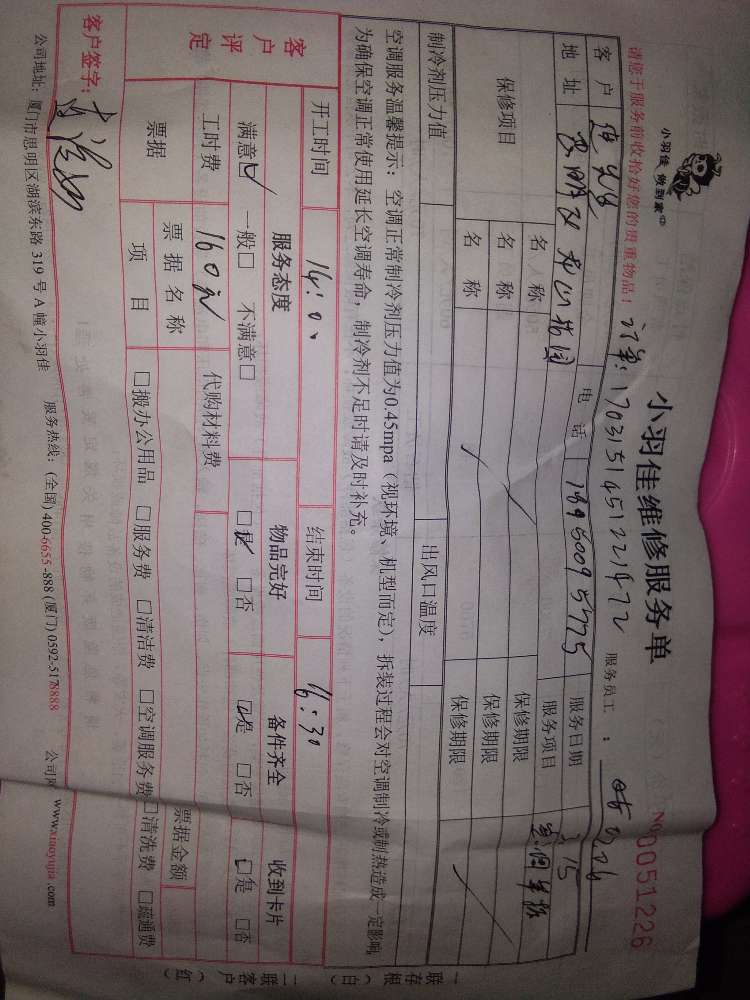 小羽佳 做到家
小羽佳维修服务单
№0051226
请您于服务前收拾好您的贵重物品！ 订单：1703151451221472 服务员工：
客户 电话 18950095775 服务日期 3.15
地址 思明区 龙山 服务项目 空调
保修项目 名称 保修期限
名称 保修期限
名称 保修期限
制冷剂压力值 出风口温度
空调服务温馨提示：空调正常制冷剂压力值为0.45mpa（视环境、机型而定），拆装过程会对空调制冷或制热造成一定影响，
为确保空调正常使用延长空调寿命，制冷剂不足时请及时补充。
开工时间 14:00 结束时间 16:30
客户评定 服务态度 物品完好 备件齐全 收到卡片
满意☑ 一般□ 不满意□ ☑是 □否 ☑是 □否 □是 □否
工时费 160元 代购材料费
票据 票据名称 票据金额
项目 □搬办公用品 □服务费 □清洁费 □空调服务费 □清洗费 □疏通费
客户签字：
公司地址：厦门市思明区湖滨东路 319 号 A 幢小羽佳 服务热线：(全国) 400-6655-888 (厦门) 0592-5178888 公司网 www.xiaoyujia.com
一联存根（白） 二联客户（红）